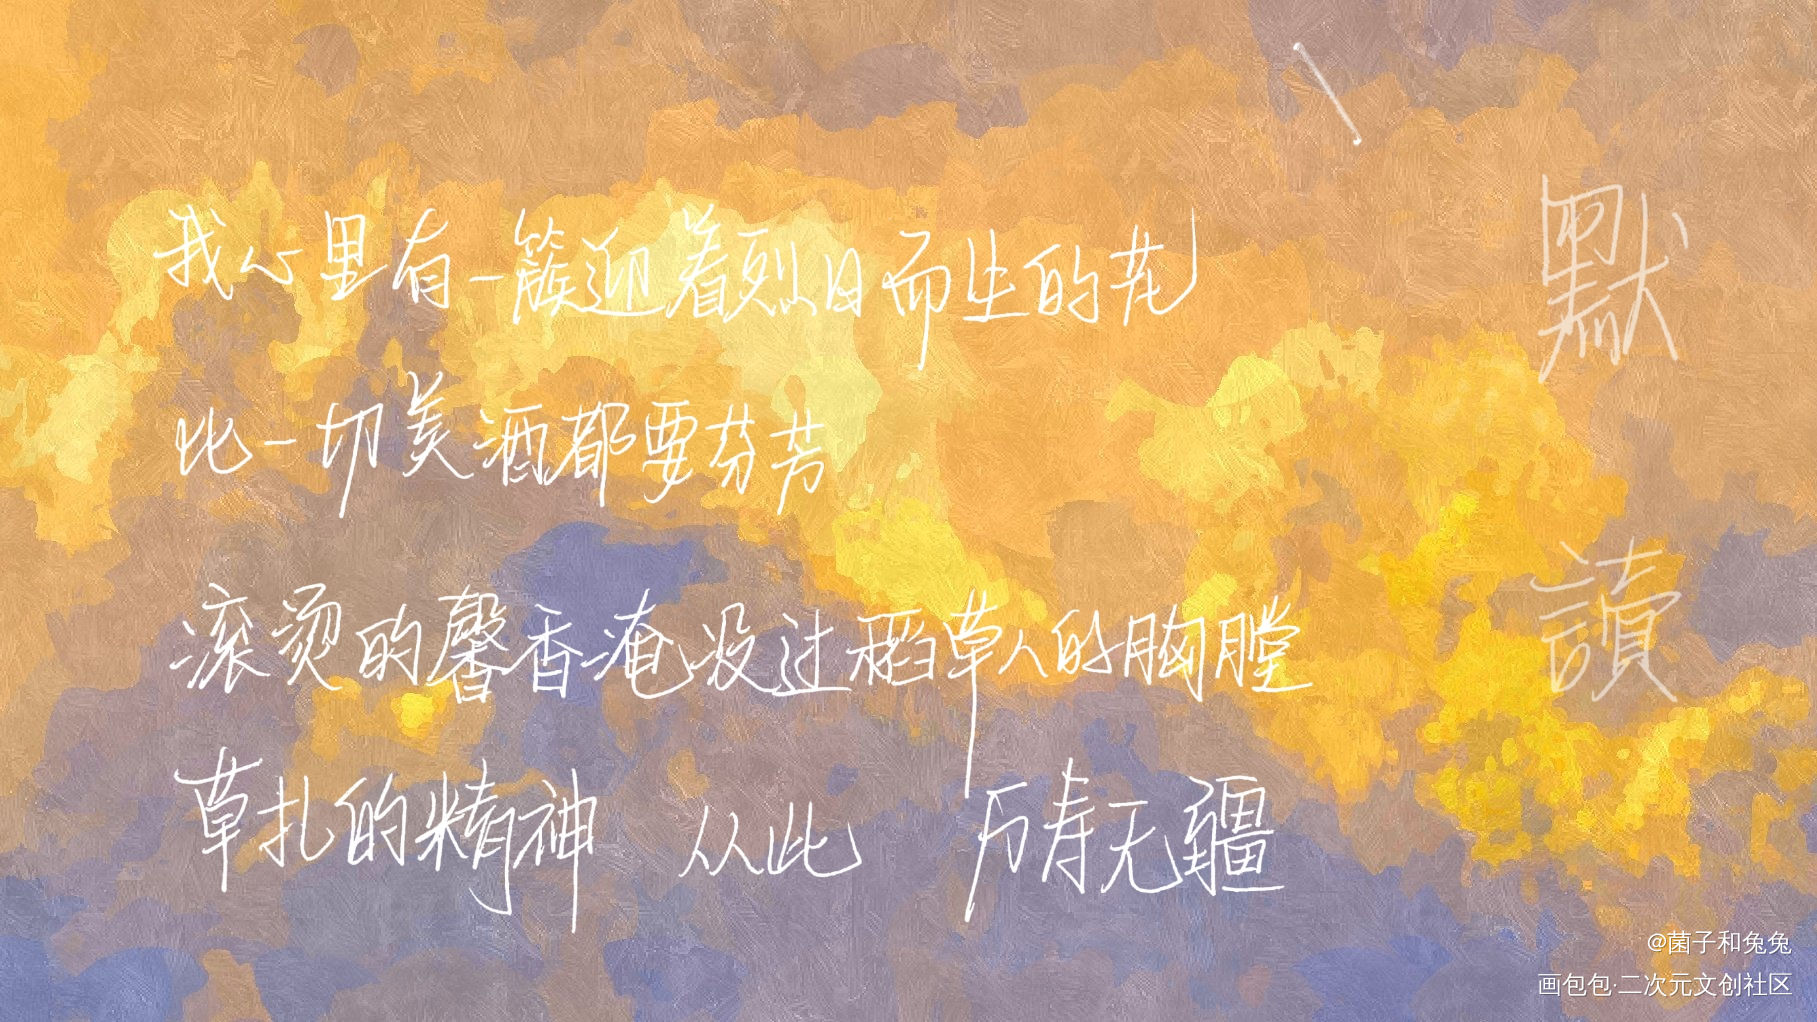 我心里有一簇迎着烈日而生的花
比一切美酒都要芬芳
滚烫的馨香淹没过稻草人的胸膛
草扎的精神 从此 万寿无疆
默
讀
@菌子和兔兔
画包包·二次元文创社区